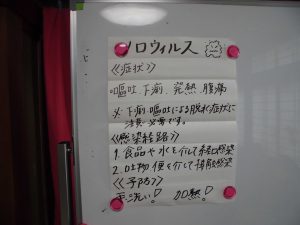 ノロウィルス
《症状》
・嘔吐、下痢、発熱、腹痛
※下痢、嘔吐による脱水症状に
注意が必要です。
《感染経路》
1. 食品や水を介して経口感染
2. 吐物、便を介して接触感染
《予防》
手洗い! 加熱!